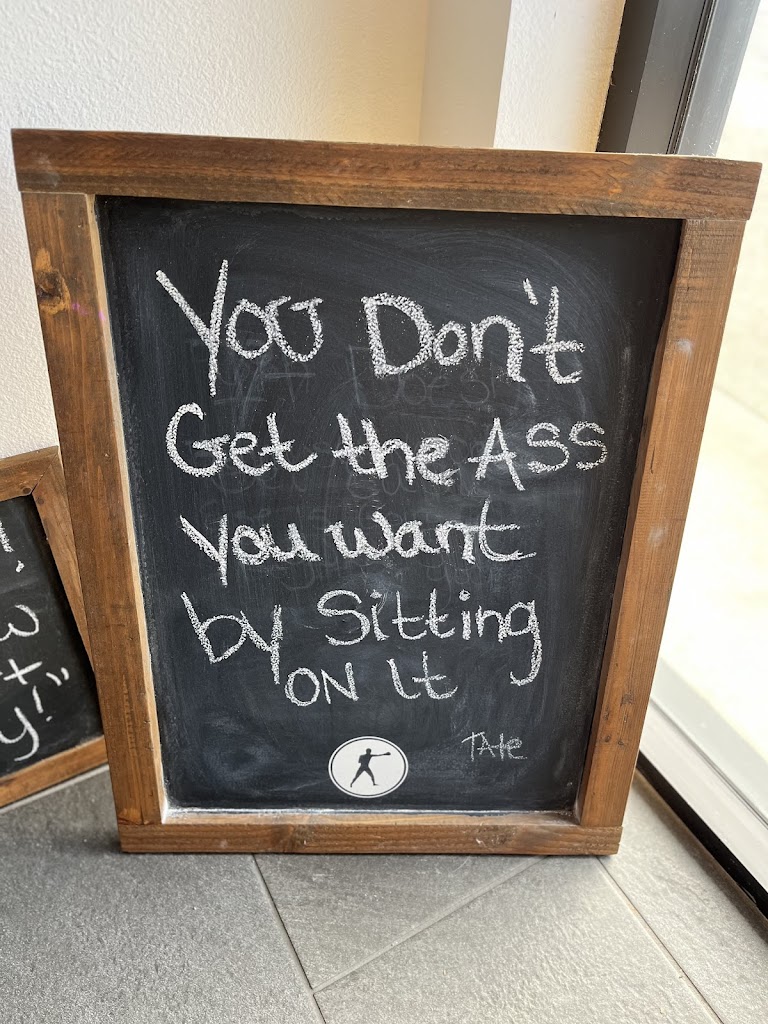 You Don't
Get the Ass
you want
by Sitting
ON it
TAte